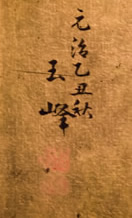 元治乙丑秋
玉峰